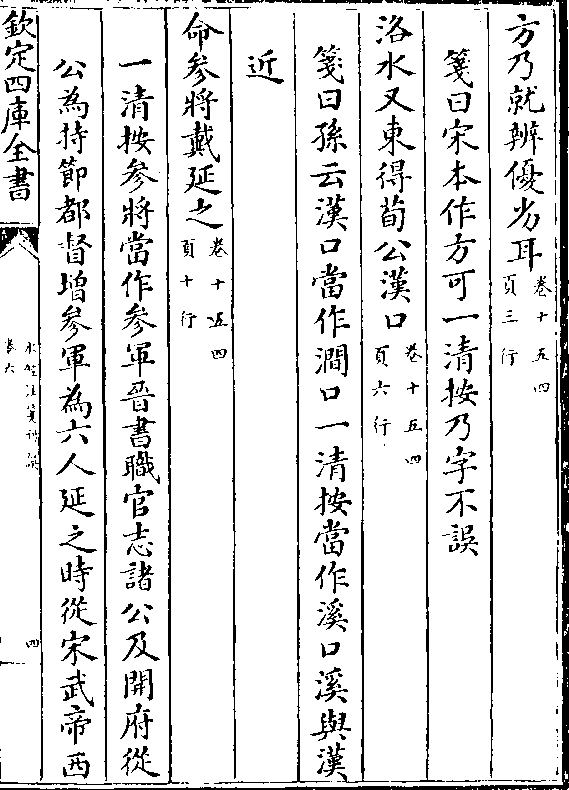 方乃就辨優劣耳卷十五四頁三行
箋曰宋本作方可一清按乃字不誤
洛水又東得荀公漢口卷十五四頁六行
箋曰孫云漢口當作澗口一清按當作溪口溪與漢
近
命參將戴延之卷十五四頁十行
一清按參將當作參軍晉書職官志諸公及開府從
公為持節都督增參軍為六人延之時從宋武帝西
欽定四庫全書
水經注箋刊誤
卷六
四